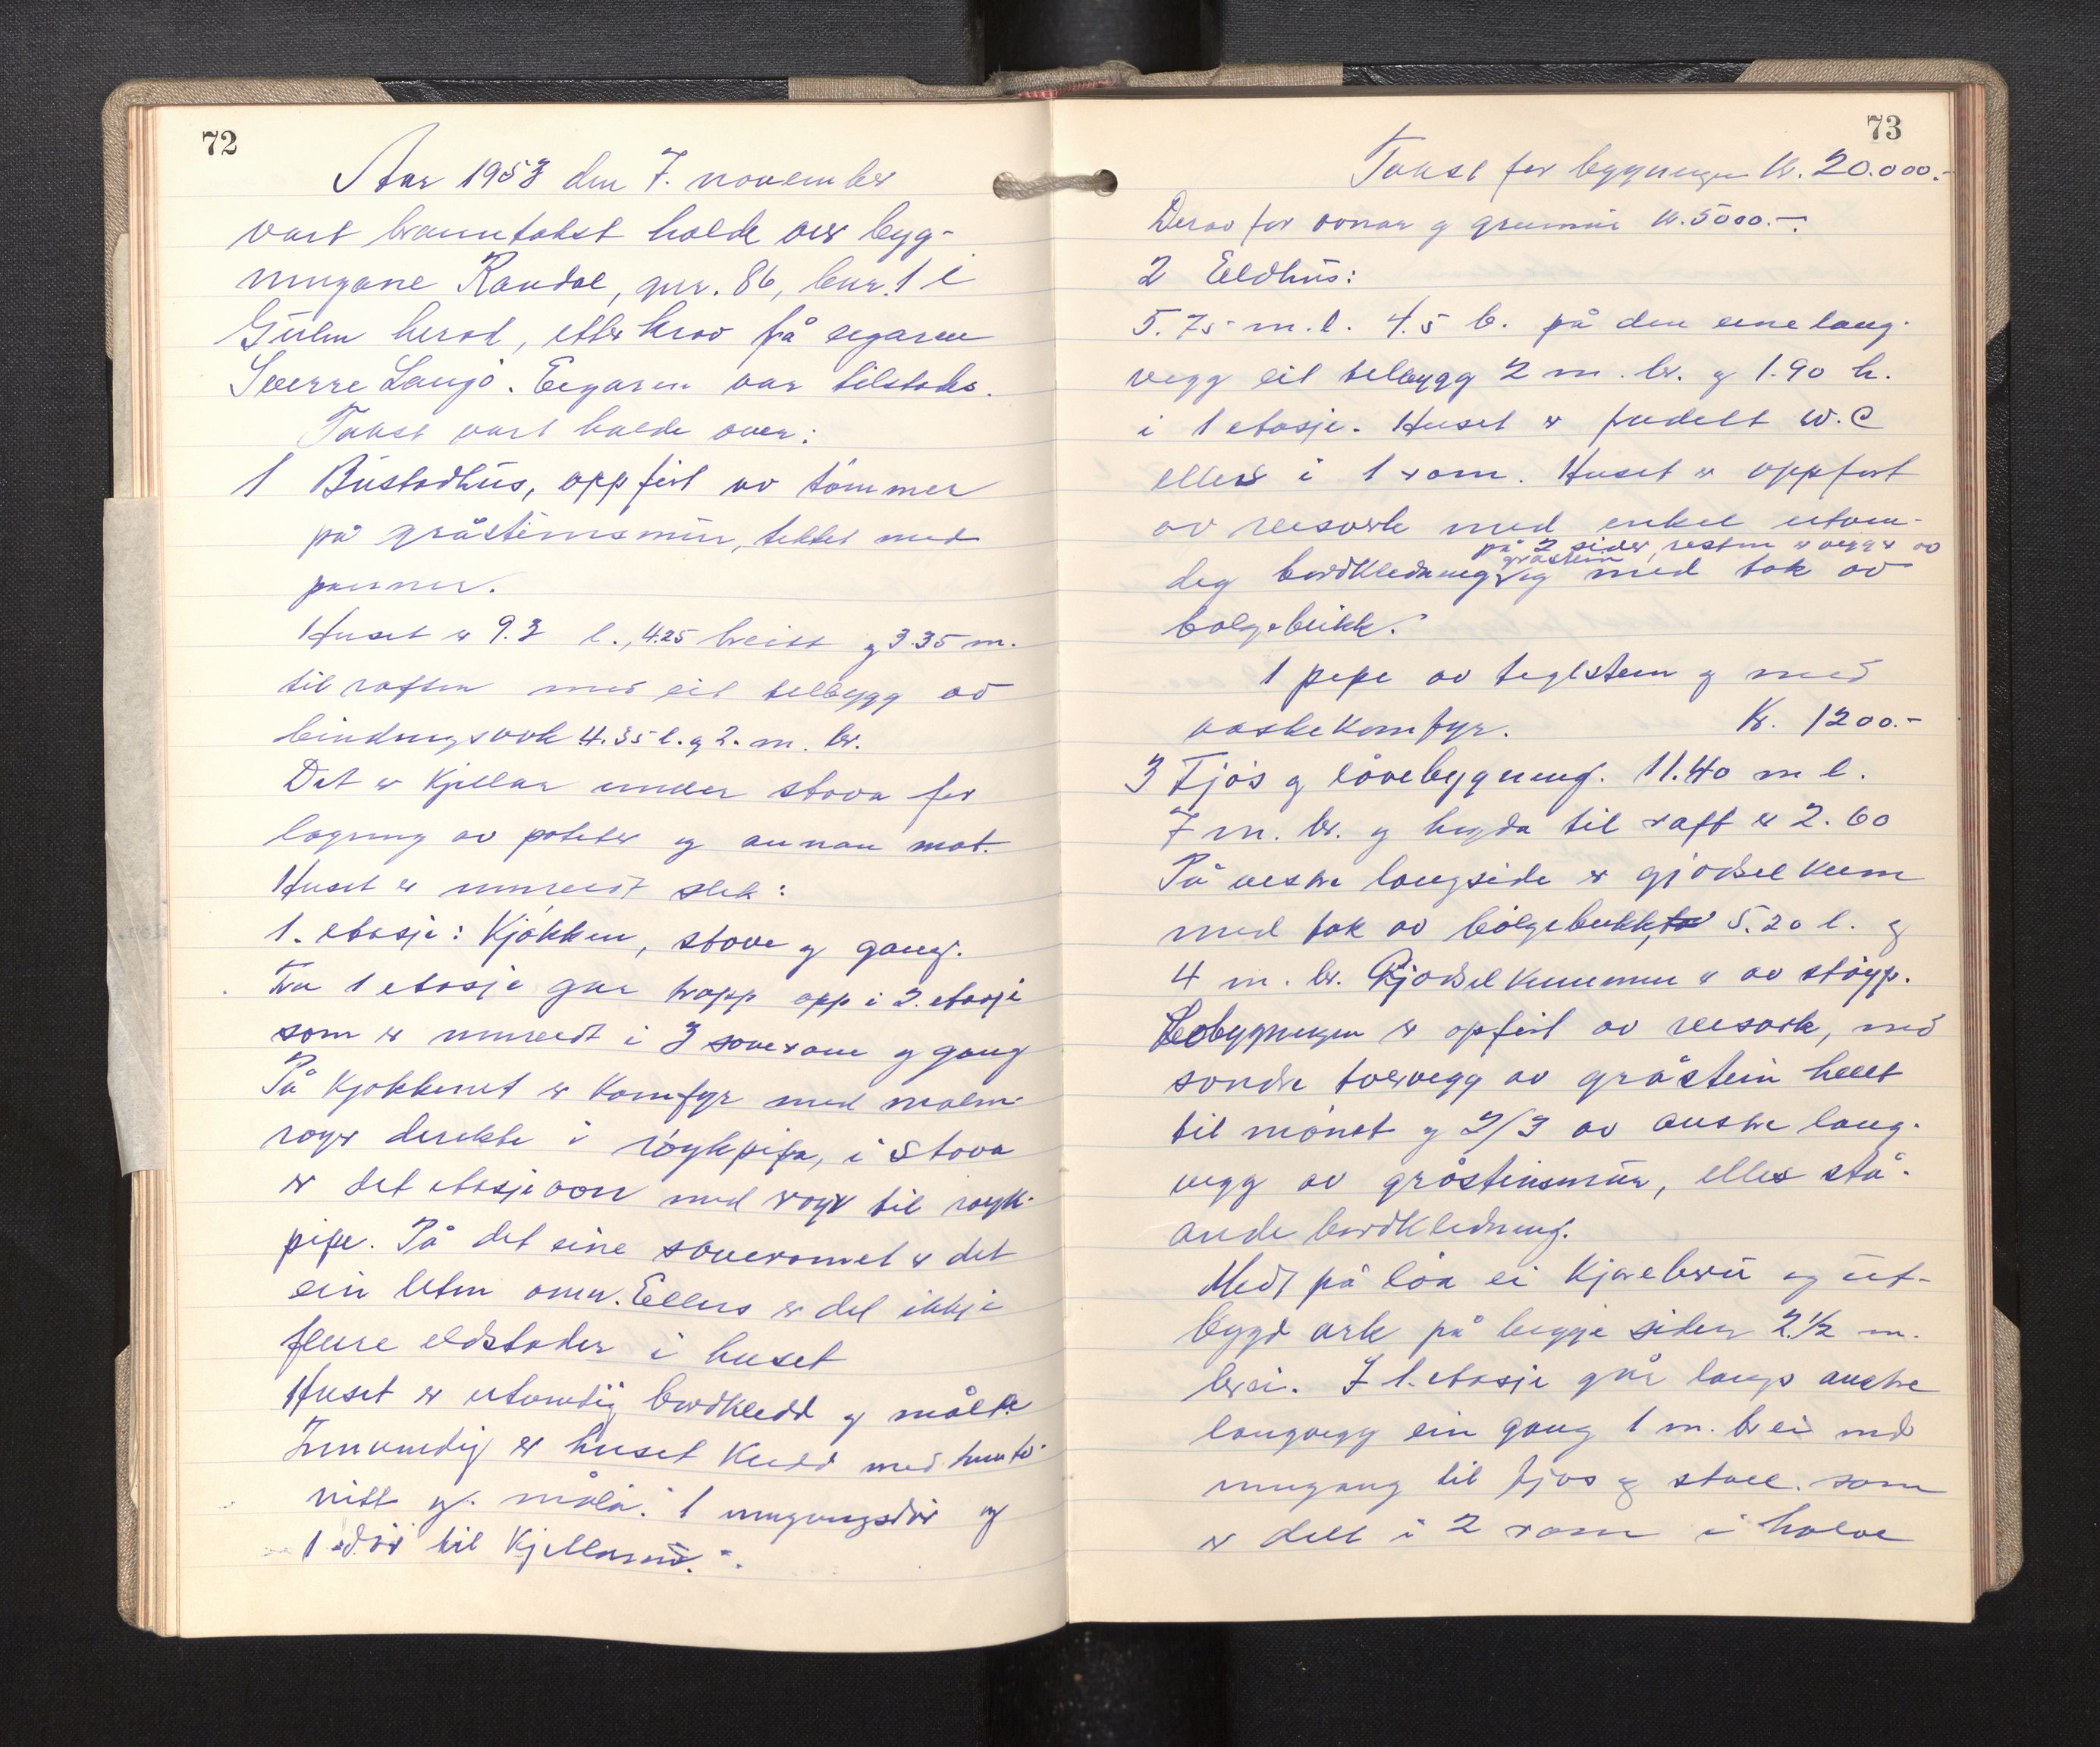 72
Aar 1953 den 7. november
vart branntakst halde over byg-
ningane Randal, gnr. 86, bnr. 1 i
Gulen herad, etter krav få eigaren
Sverre Laugø. Eigaren var tilstades.
Takst vart halde over:
1 Bústadhús, oppfört av tömmer
på gråsteinsmúr, tekket med
panner.
Huset er 9.3 l., 4.25 breitt og 3.35 m.
til raften med eit tilbygg av
bindingsverk 4.35 l. og 2. m. br.
Det er Kjellar under stova for
lagring av poteter og annan mat.
Huset er innreidt slik:
1. etasje: Kjökken, stove og gang.
Fra 1 etasje går trapp opp i 2. etasje
som er innreidt i 3 soverom og gang
På Kjøkkenet er Komfyr med malm-
røyr direkte i röykpipa, i stova
er det etasjeovn med røyr til røyk-
pipe. På det eine soveromet er det
ein liten omn. Ellers er det ikkje
fleire eldstader i huset
Huset er utvendig bordkledd og måla
Innvendig er huset kledd med hunto-
nitt og måla. 1 inngangsdör og
1 dör til Kjellaren.
73
Takst for bygningen kr. 20.000.-
Derav for ovnar og grunnmur kr. 5000.-
2 Eldhús:
5.75 m.l. 4.5 b. på den eine lang-
vegg eit tilbygg 2 m. br. og 1.90 h.
i 1 etasje. Huset er fradelt W.C
ellers i 1 rom. Huset er oppfört
av reisverk med enkel utven-
på 2 sider, resten er vegger av
gråstein
dig bordkledning og med tak av
bølgeblikk.
1 pipe av teglstein og med
vaskekomfyr. Kr. 1200.-
3 Fjós og lövebygning. 11.40 m l.
7 m. br. og høgda til raft er 2.60
På vestre langside er gjødselkum
med tak av bölgeblikk, 5.20 l. og
4 m. br. Gjødselkummen er av stöyp.
Løbygningen er opfört av reisverk, med
søndre tvervegg av gråstein heilt
til mönet og 2/3 av austre lang-
vegg av gråsteinsmúr, elles stå-
ande bordkledning.
Midt på löa ei Kjørebrú og út-
bygd ark på begge sider 2.½ m.
brei. I 1. etasje går langs austre
langvegg ein gang 1 m. brei med
inngang til fjøs og stall. som
er delt i 2 rom i halve